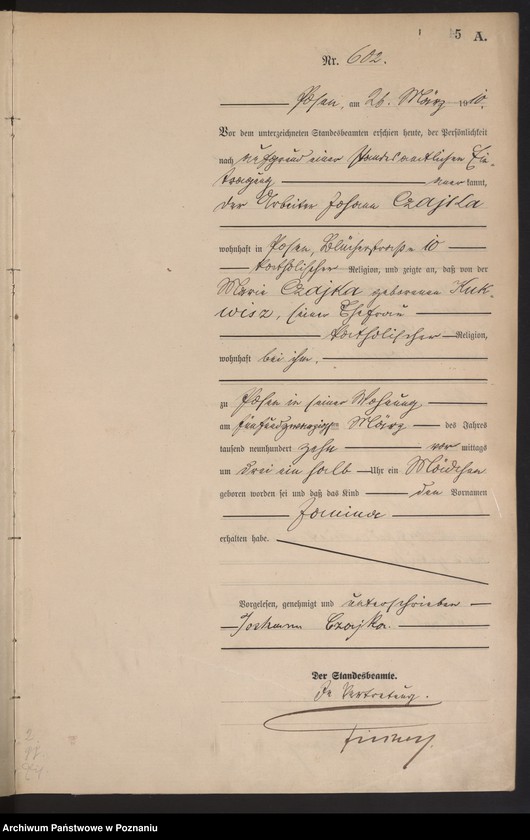 5 A.
Nr. 602.
Posen, am 26. März 1910.
Vor dem unterzeichneten Standesbeamten erschien heute, der Persönlichkeit
nach aufgrund einer standesamtlichen Ein-
tragung anerkannt,
der Arbeiter Johann Czajka
wohnhaft in Posen, Blücherstraße 10
katholischer Religion, und zeigte an, daß von der
Marie Czajka geborenen Kuk-
wisz, seiner Ehefrau
katholischer Religion,
wohnhaft bei ihm,
zu Posen in seiner Wohnung
am fünfundzwanzigsten März des Jahres
tausend neunhundert zehn vormittags
um drei ein halb Uhr ein Mädchen
geboren worden sei und daß das Kind den Vornamen
Janina
erhalten habe.
Vorgelesen, genehmigt und unterschrieben
Johann Czajka.
Der Standesbeamte.
In Vertretung.
Archiwum Państwowe w Poznaniu